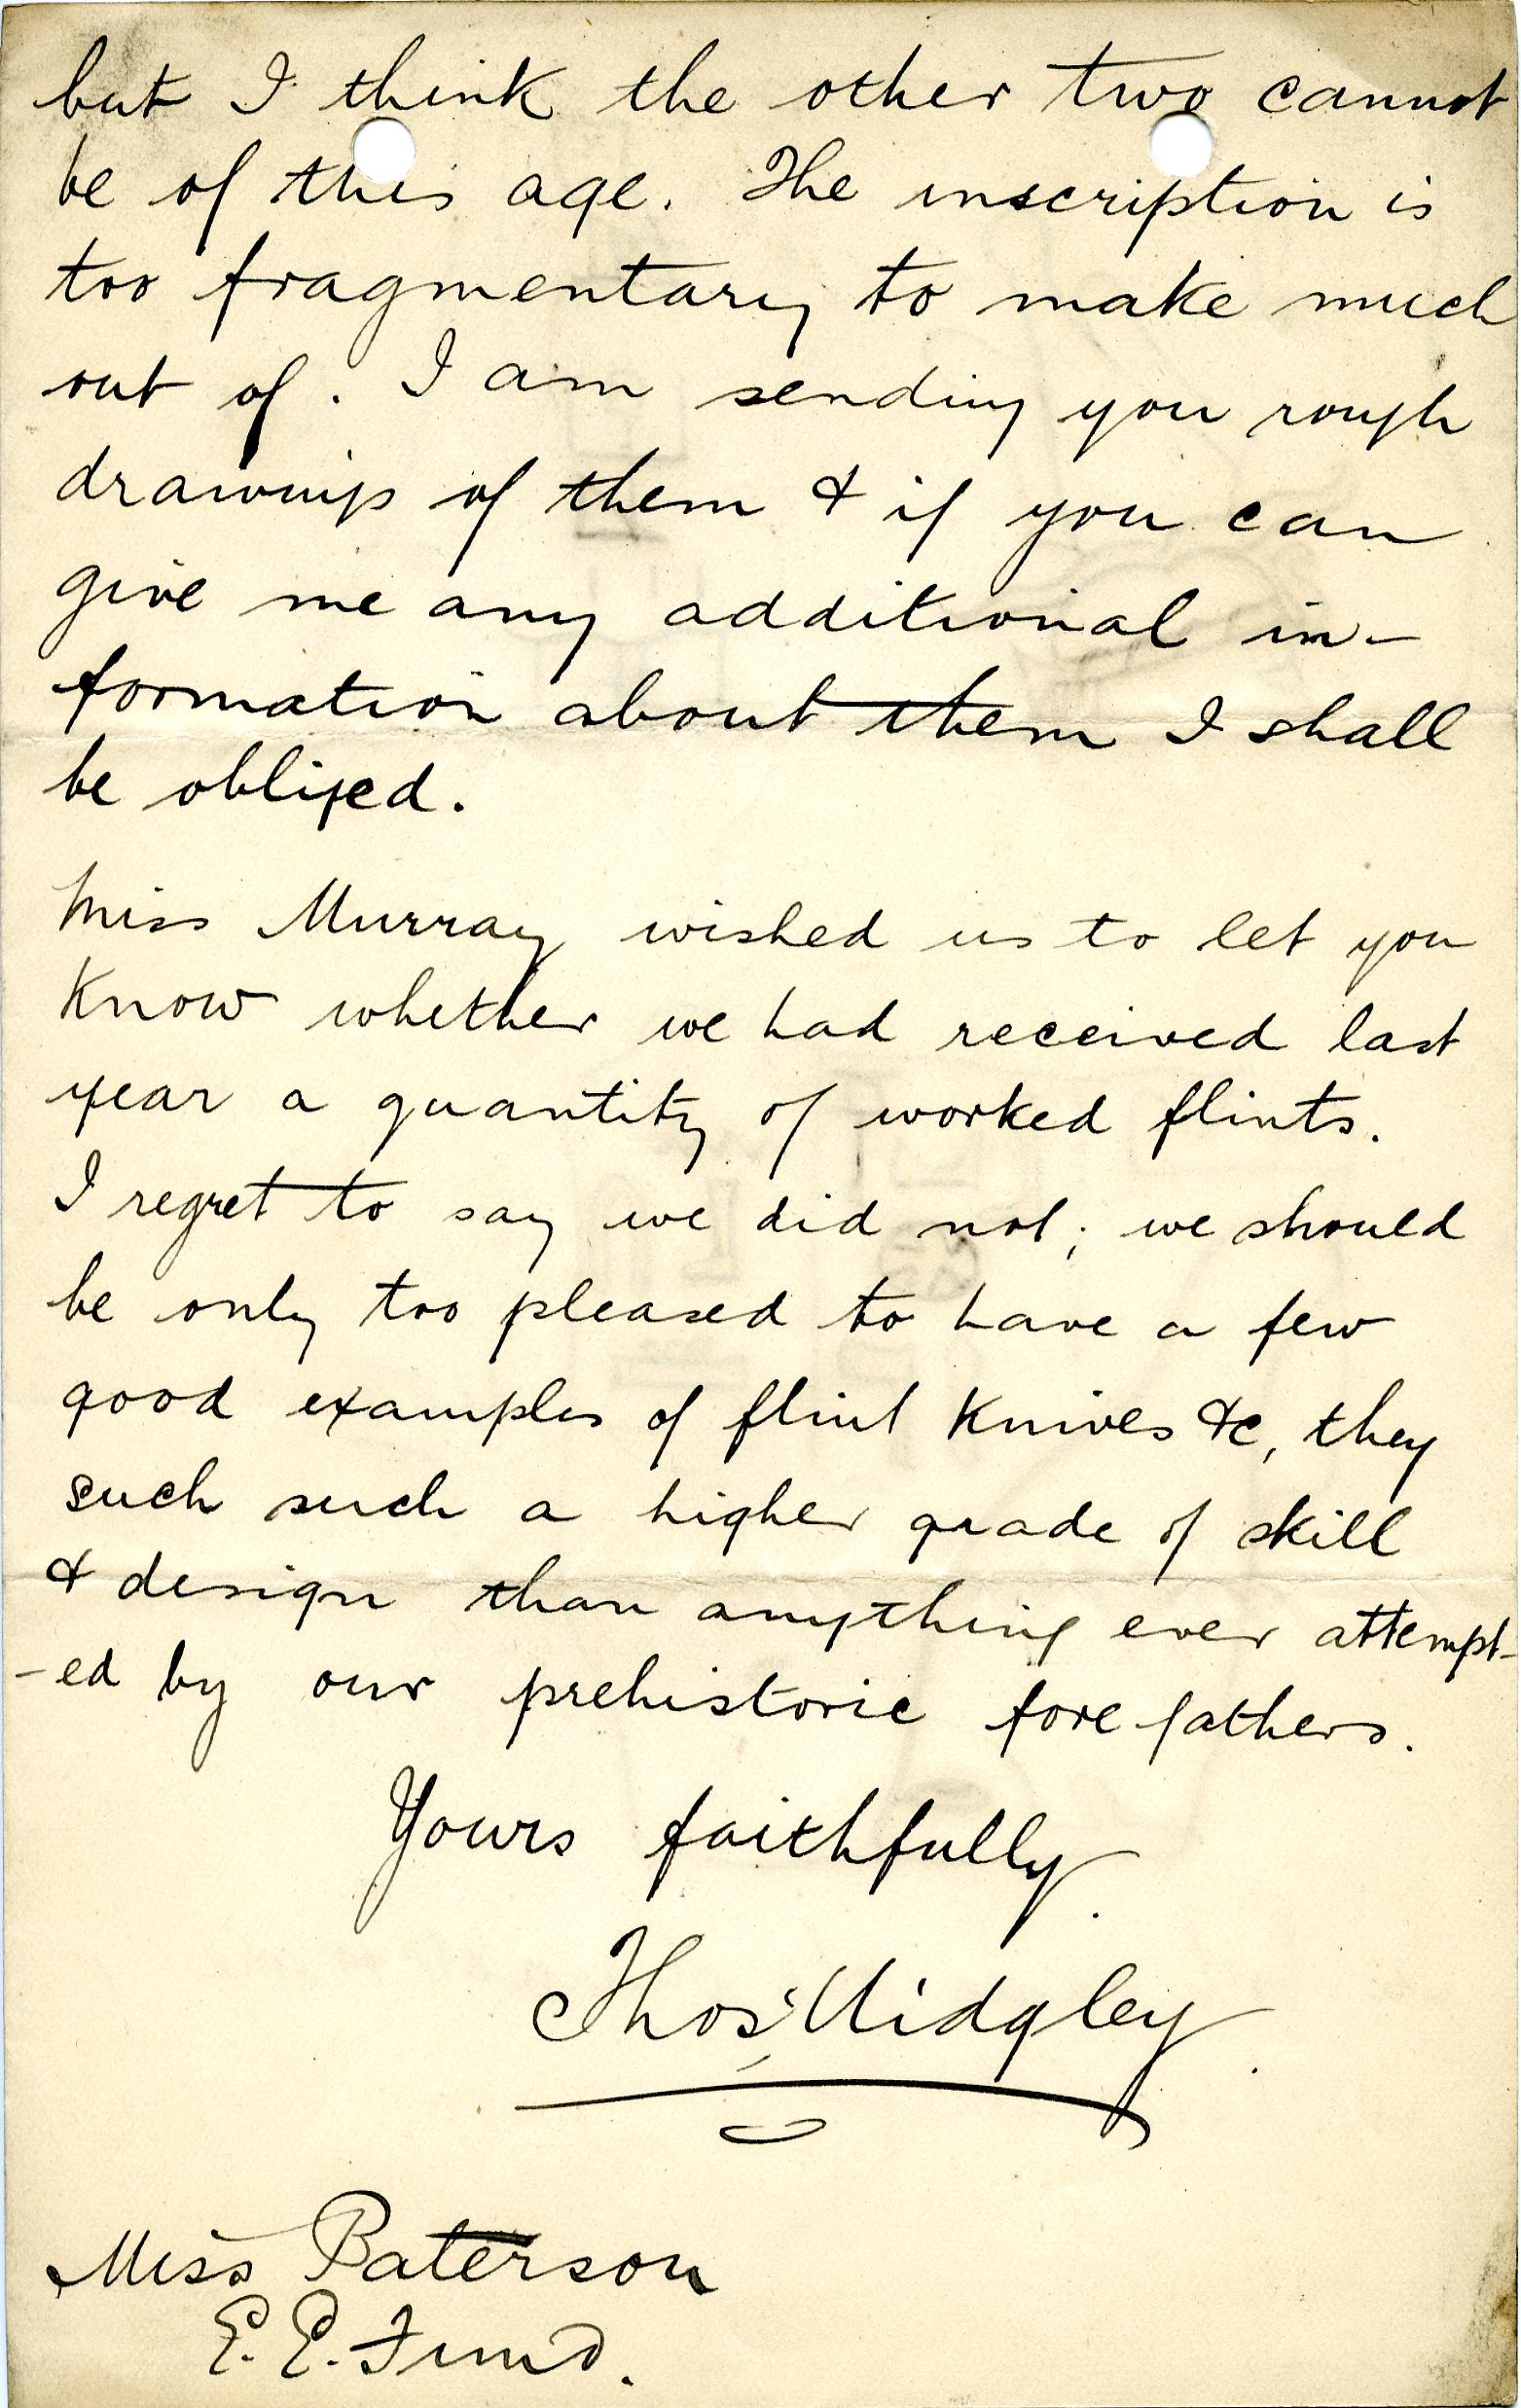 but I think the other two cannot
be of this age. The inscription is
too fragmentary to make much
out of. I am sending you rough
drawings of them & if you can
give me any additional in-
formation about them I shall
be obliged.
Miss Murray wished us to let you
know whether we had received last
year a quantity of worked flints.
I regret to say we did not; we should
be only too pleased to have a few
good examples of flint knives &c, they
such such a higher grade of skill
& design than anything ever attempt-
-ed by our prehistoric fore fathers.
Yours faithfully
Thos Midgley
Miss Paterson
E. E. Fund.